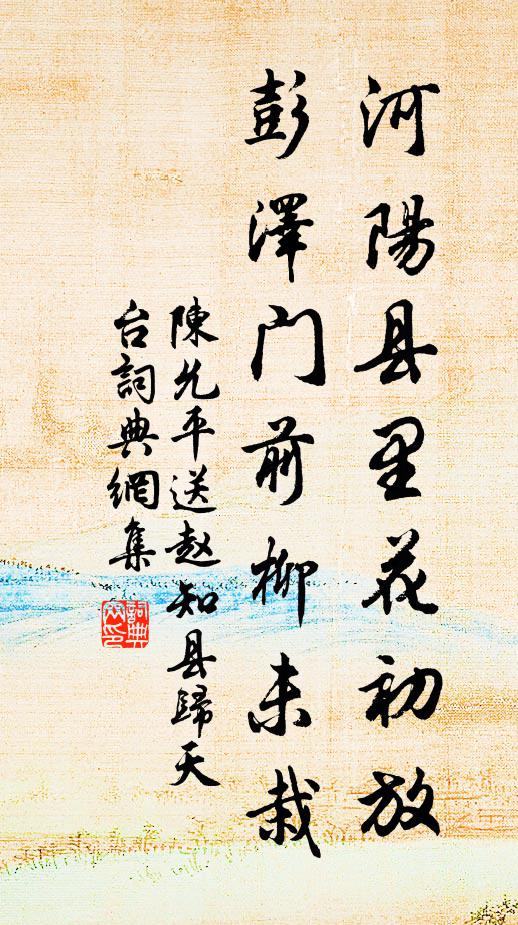 河陽县里花初放
彭澤门前柳未栽
陳允平送赵知县歸天
台詞典網集
詞典